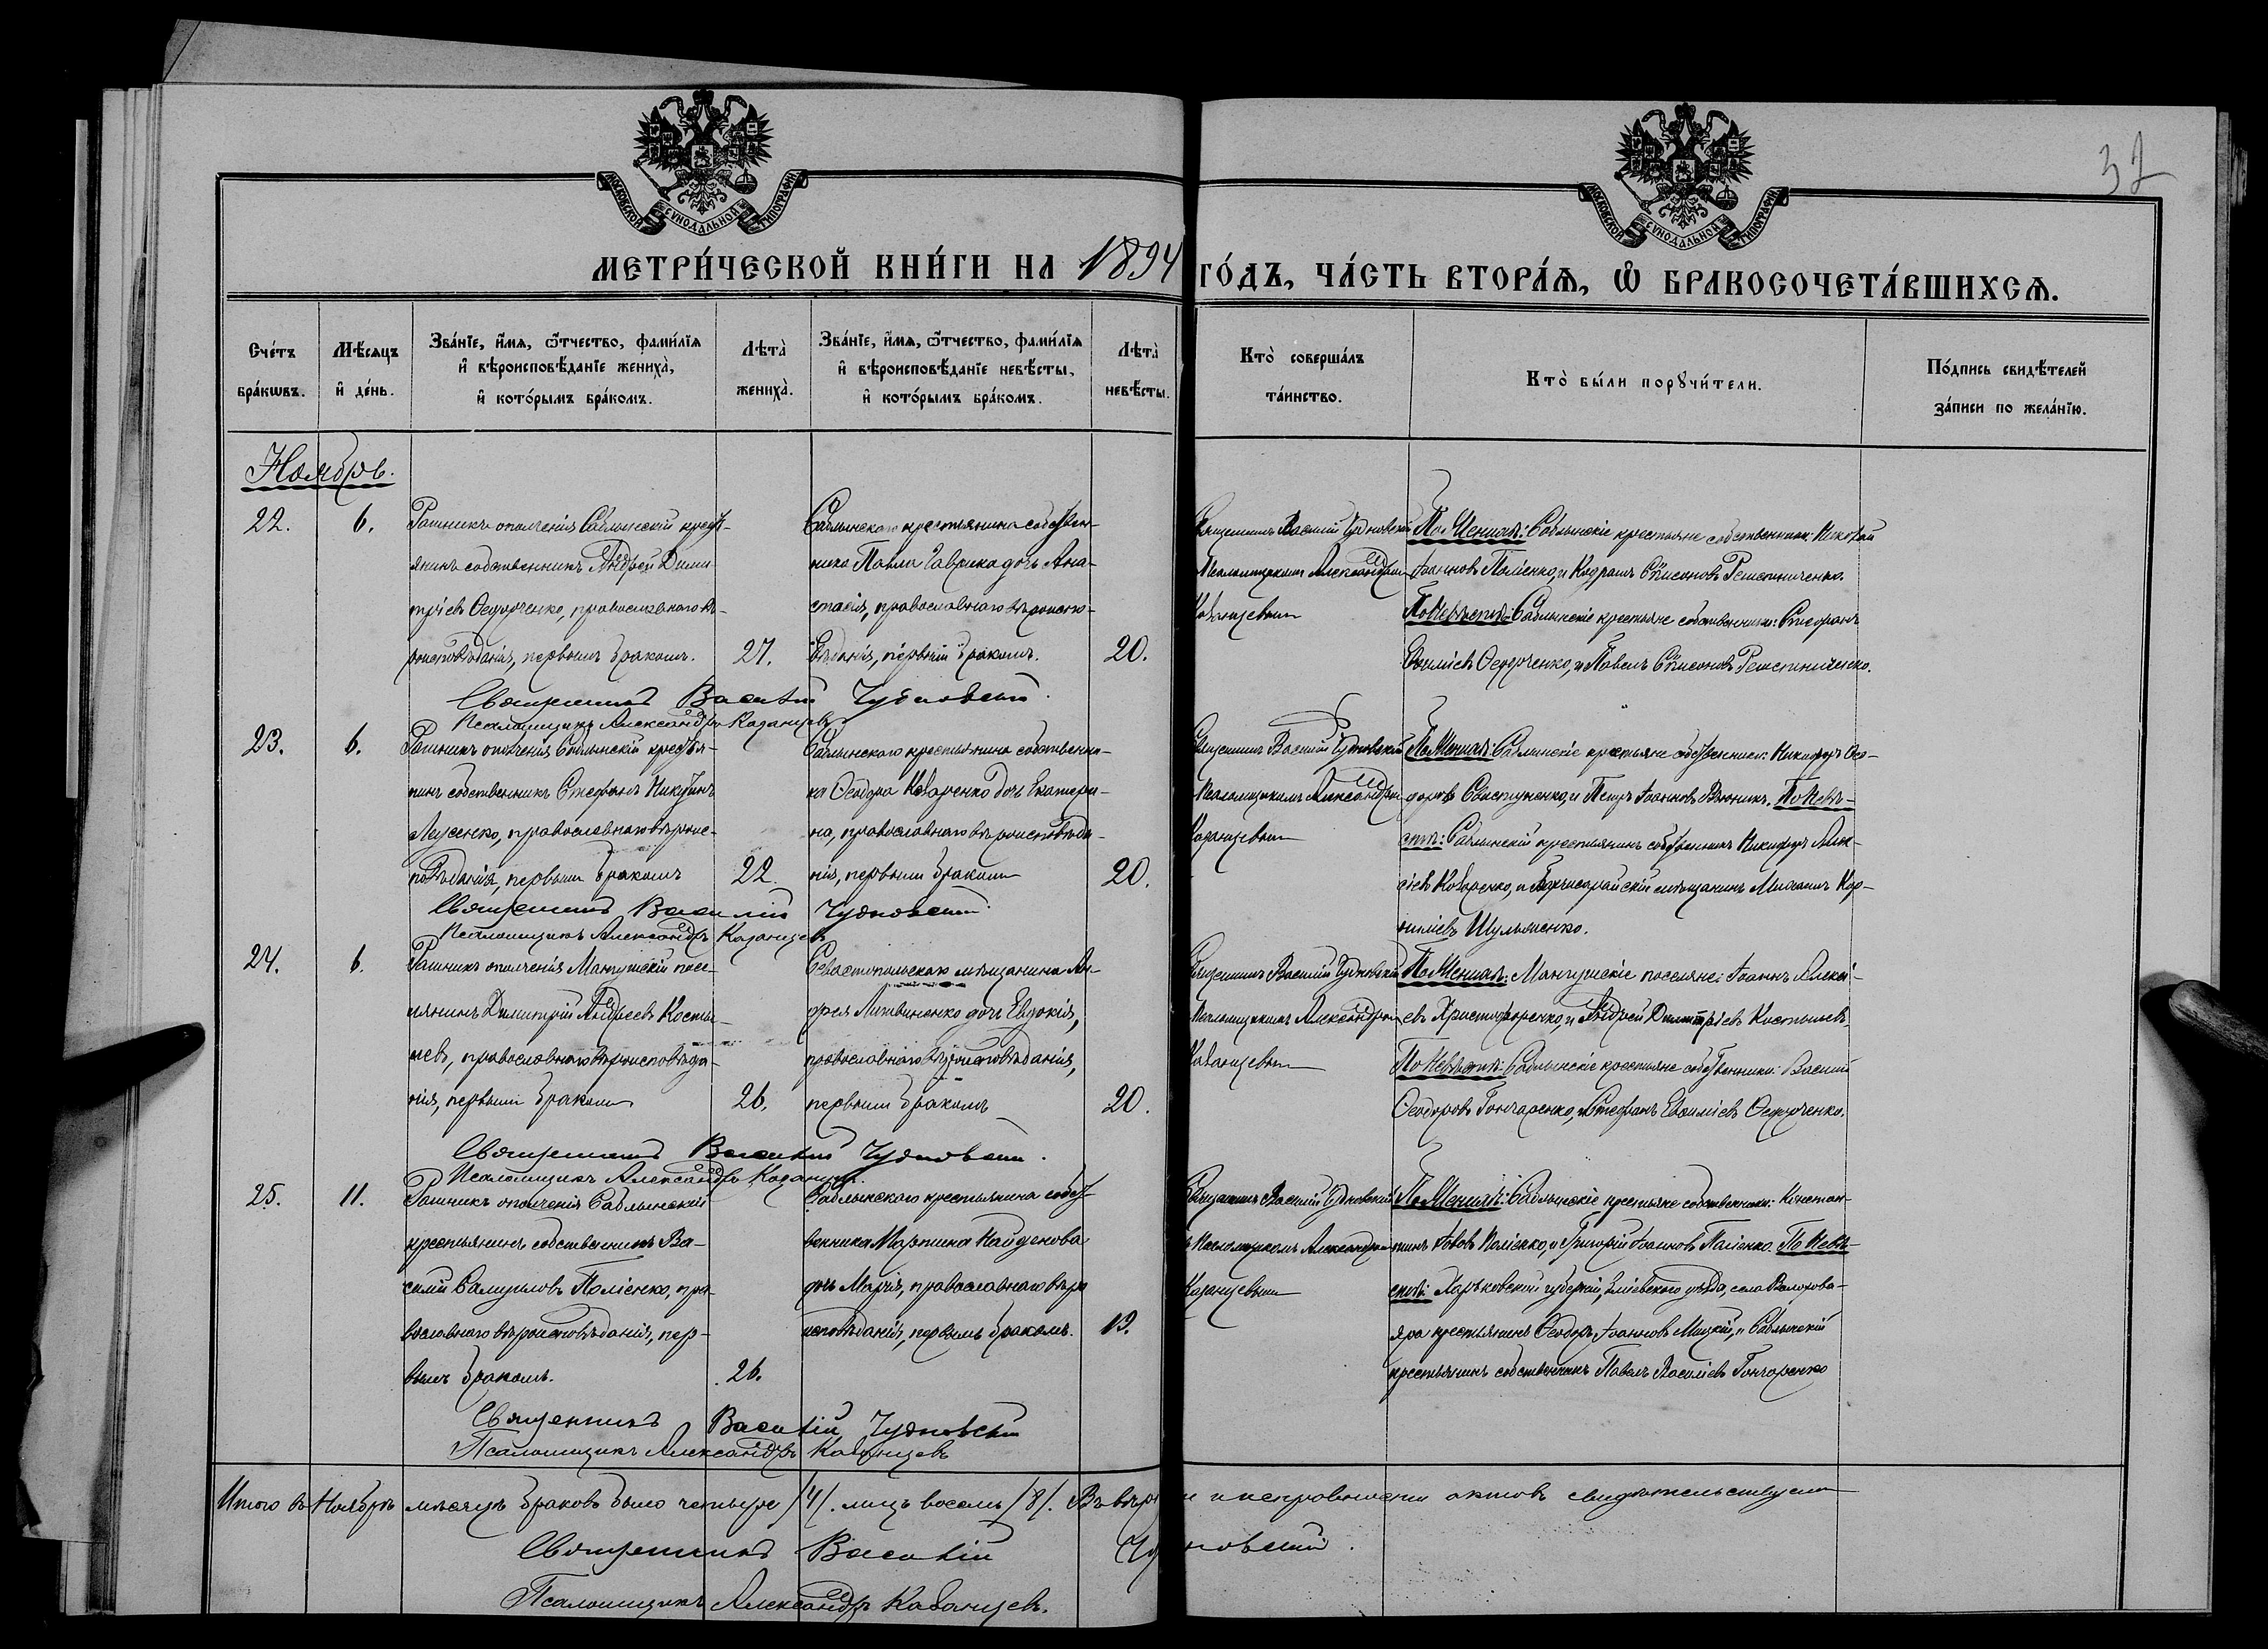 32
МОСКОВСКОЙ СУНОДАЛЬНОЙ ТИПОГРАФІИ
МОСКОВСКОЙ СУНОДАЛЬНОЙ ТИПОГРАФІИ
МЕТРИ́ЧЕСКОЙ КНИ́ГИ НА 1894 ГО́ДЪ, ЧА́СТЬ ВТОРА́Ѧ, Ѽ БРАКОСОЧЕТА́ВШИХСѦ.
Сче́тъ бра́кѡвъ.
Мѣ́сяцъ и҆ де́нь.
Зва́нїе, и҆́мѧ, ѻ҆́тчество, фами́лїѧ
и҆ вѣроисповѣ́данїе жениха̀,
и҆ кото́рымъ бра́комъ.
Лѣта̀ жениха̀.
Зва́нїе, и҆́мѧ, ѻ҆́тчество, фами́лїѧ
и҆ вѣроисповѣ́данїе невѣ́сты,
и҆ кото́рымъ бра́комъ.
Лѣта̀ невѣ́сты.
Кто̀ соверша́лъ
та́инство.
Кто̀ бы́ли порꙋчи́тели.
По́дпись свидѣ́телей
за́писи по жела́нїю.
Ноябрь.
22.
6.
Ратникъ ополченія Саблынскій кресть-
янинъ собственникъ Андрей Дими-
тріевъ Ѳедорченко, православнаго вѣ-
роисповѣданія, первымъ бракомъ.
27.
Саблынскаго крестьянина собствен-
ника Павла Гаврика дочь Ана-
стасія, православнаго вѣроиспо-
вѣданія, первымъ бракомъ.
20.
Священникъ Василій Чудновскій
Псаломщикомъ Александромъ
Казанцевымъ
По Женихѣ: Саблынскіе крестьяне собственники: Николай
Іоанновъ Поліенко, и Кодратъ
По Невѣстѣ: Саблынскіе крестьяне собственники: Стефанъ
Евѳиміевъ Ѳедорченко, и Павелъ
Священникъ Василій Чудновскій.
Псаломщикъ Александръ Казанцевъ
23.
6.
Ратникъ ополченія Саблынскій крестья-
нинъ собственникъ Стефанъ Никитинъ
Лысенко, православнаго вѣроис-
повѣданія, первымъ бракомъ
22.
Саблынскаго крестьянина собственни-
ка Ѳеодора Коваренко дочь Екатери-
на, православнаго вѣроисповѣда-
нія, первымъ бракомъ
20.
Священникъ Василій Чудновскій
Псаломщикомъ Александромъ
Казанцевымъ
По Женихѣ: Саблынскіе крестьяне собственники: Никифоръ Ѳео-
доровъ Свистуненко, и Петръ Іоанновъ Вьюникъ. По Невѣ-
стѣ: Саблынскій крестьянинъ собственникъ Никифоръ Алек-
сіевъ Коваренко, и Бахчисарайскій мѣщанинъ Михаилъ Кор-
ниліевъ Шульженко.
Священникъ Василій Чудновскій.
Псаломщикъ Александръ Казанцевъ
24.
6.
Ратникъ ополченія Мангушскій посе-
лянинъ Димитрій Андреевъ Косты-
левъ, православнаго вѣроисповѣда-
нія, первымъ бракомъ
26.
Севастопольскаго мѣщанина Ан-
дрея Литвиненко дочь Евдокія,
православнаго вѣроисповѣданія,
первымъ бракомъ
20.
Священникъ Василій Чудновскій
Псаломщикомъ Александромъ
Казанцевымъ
По Женихѣ: Мангушскіе поселяне: Іоаннъ Алексі-
евъ Христофоренко, и Андрей Димитріевъ Костылевъ.
По Невѣстѣ: Саблынскіе крестьяне собственники: Василій
Ѳеодоровъ Гончаренко, и Стефанъ Евѳиміевъ Ѳедорченко.
Священникъ Василій Чудновскій.
Псаломщикъ Александръ Казанцевъ.
25.
11.
Ратникъ ополченія Саблынскій
крестьянинъ собственникъ Ва-
силій Самуиловъ Поліенко, пра-
вославнаго вѣроисповѣданія, пер-
вымъ бракомъ.
26.
Саблынскаго крестьянина собст-
венника Мартина Найденова
дочь Марія, православнаго вѣро
исповѣданія, первымъ бракомъ.
19.
Священникъ Василій Чудновскій
съ Псаломщикомъ Александромъ
Казанцевымъ
По Женихѣ: Саблынскіе крестьяне собственники: Констан-
тинъ Іововъ Поліенко, и Григорій Іоанновъ Поліенко. По Невѣ-
стѣ: Харьковской губерніи, Зміевского уѣзда, села
яра крестьянинъ Ѳеодоръ Іоанновъ Мацкій, и Саблынскій
крестьянинъ собственникъ Павелъ Василіевъ Гончаренко
Священникъ Василій Чудновскій
Псаломщикъ Александръ Казанцевъ
Итого въ Ноябрѣ мѣсяцѣ браковъ было четыре /4/. лицъ восемь /8/. Въ вѣрн и исправности актовъ свидѣтельствуемъ
Священникъ Василій Чудновскій.
Псаломщикъ Александръ Казанцевъ.